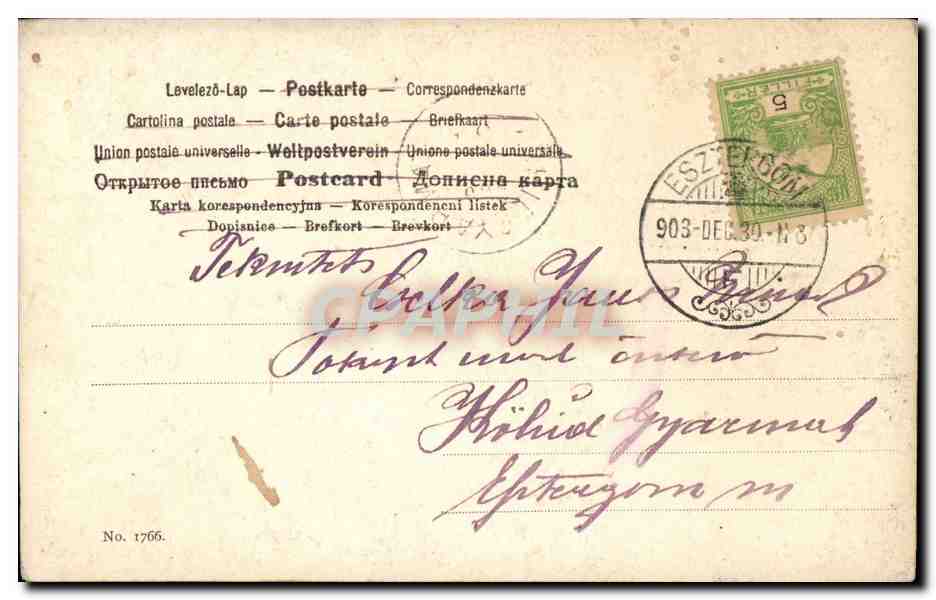 Levelező-Lap — Postkarte — Correspondenzkarte
Cartolina postale — Carte postale — Briefkaart
Union postale universelle - Weltpostverein - Unione postale universale
Открытое письмо Postcard - Дописна карта
Karta korespondencyjna — Korespondencni listek
Dopisnice — Brefkort — Brevkort
FILLÉR
5
ESZTERGOM
903-DEC.30.
Tekintetes
János
Köhid Gyarmat
Esztergom m
CPAPHIL
No. 1766.